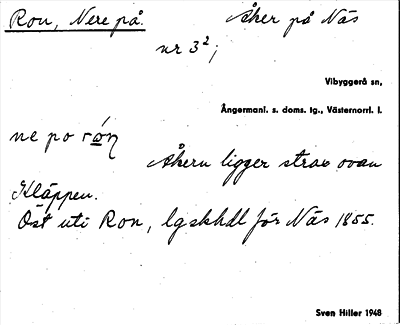 Ron, Nere på. Åker på Näs
nr 3²;
Vibyggerå sn,
Ångermanl. s. doms. tg., Västernorrl. l.
ne po rón
Åkern ligger strax ovan
Kläppen.
Öst uti Ron, lgskhdl för Näs 1855.
Sven Hiller 1948